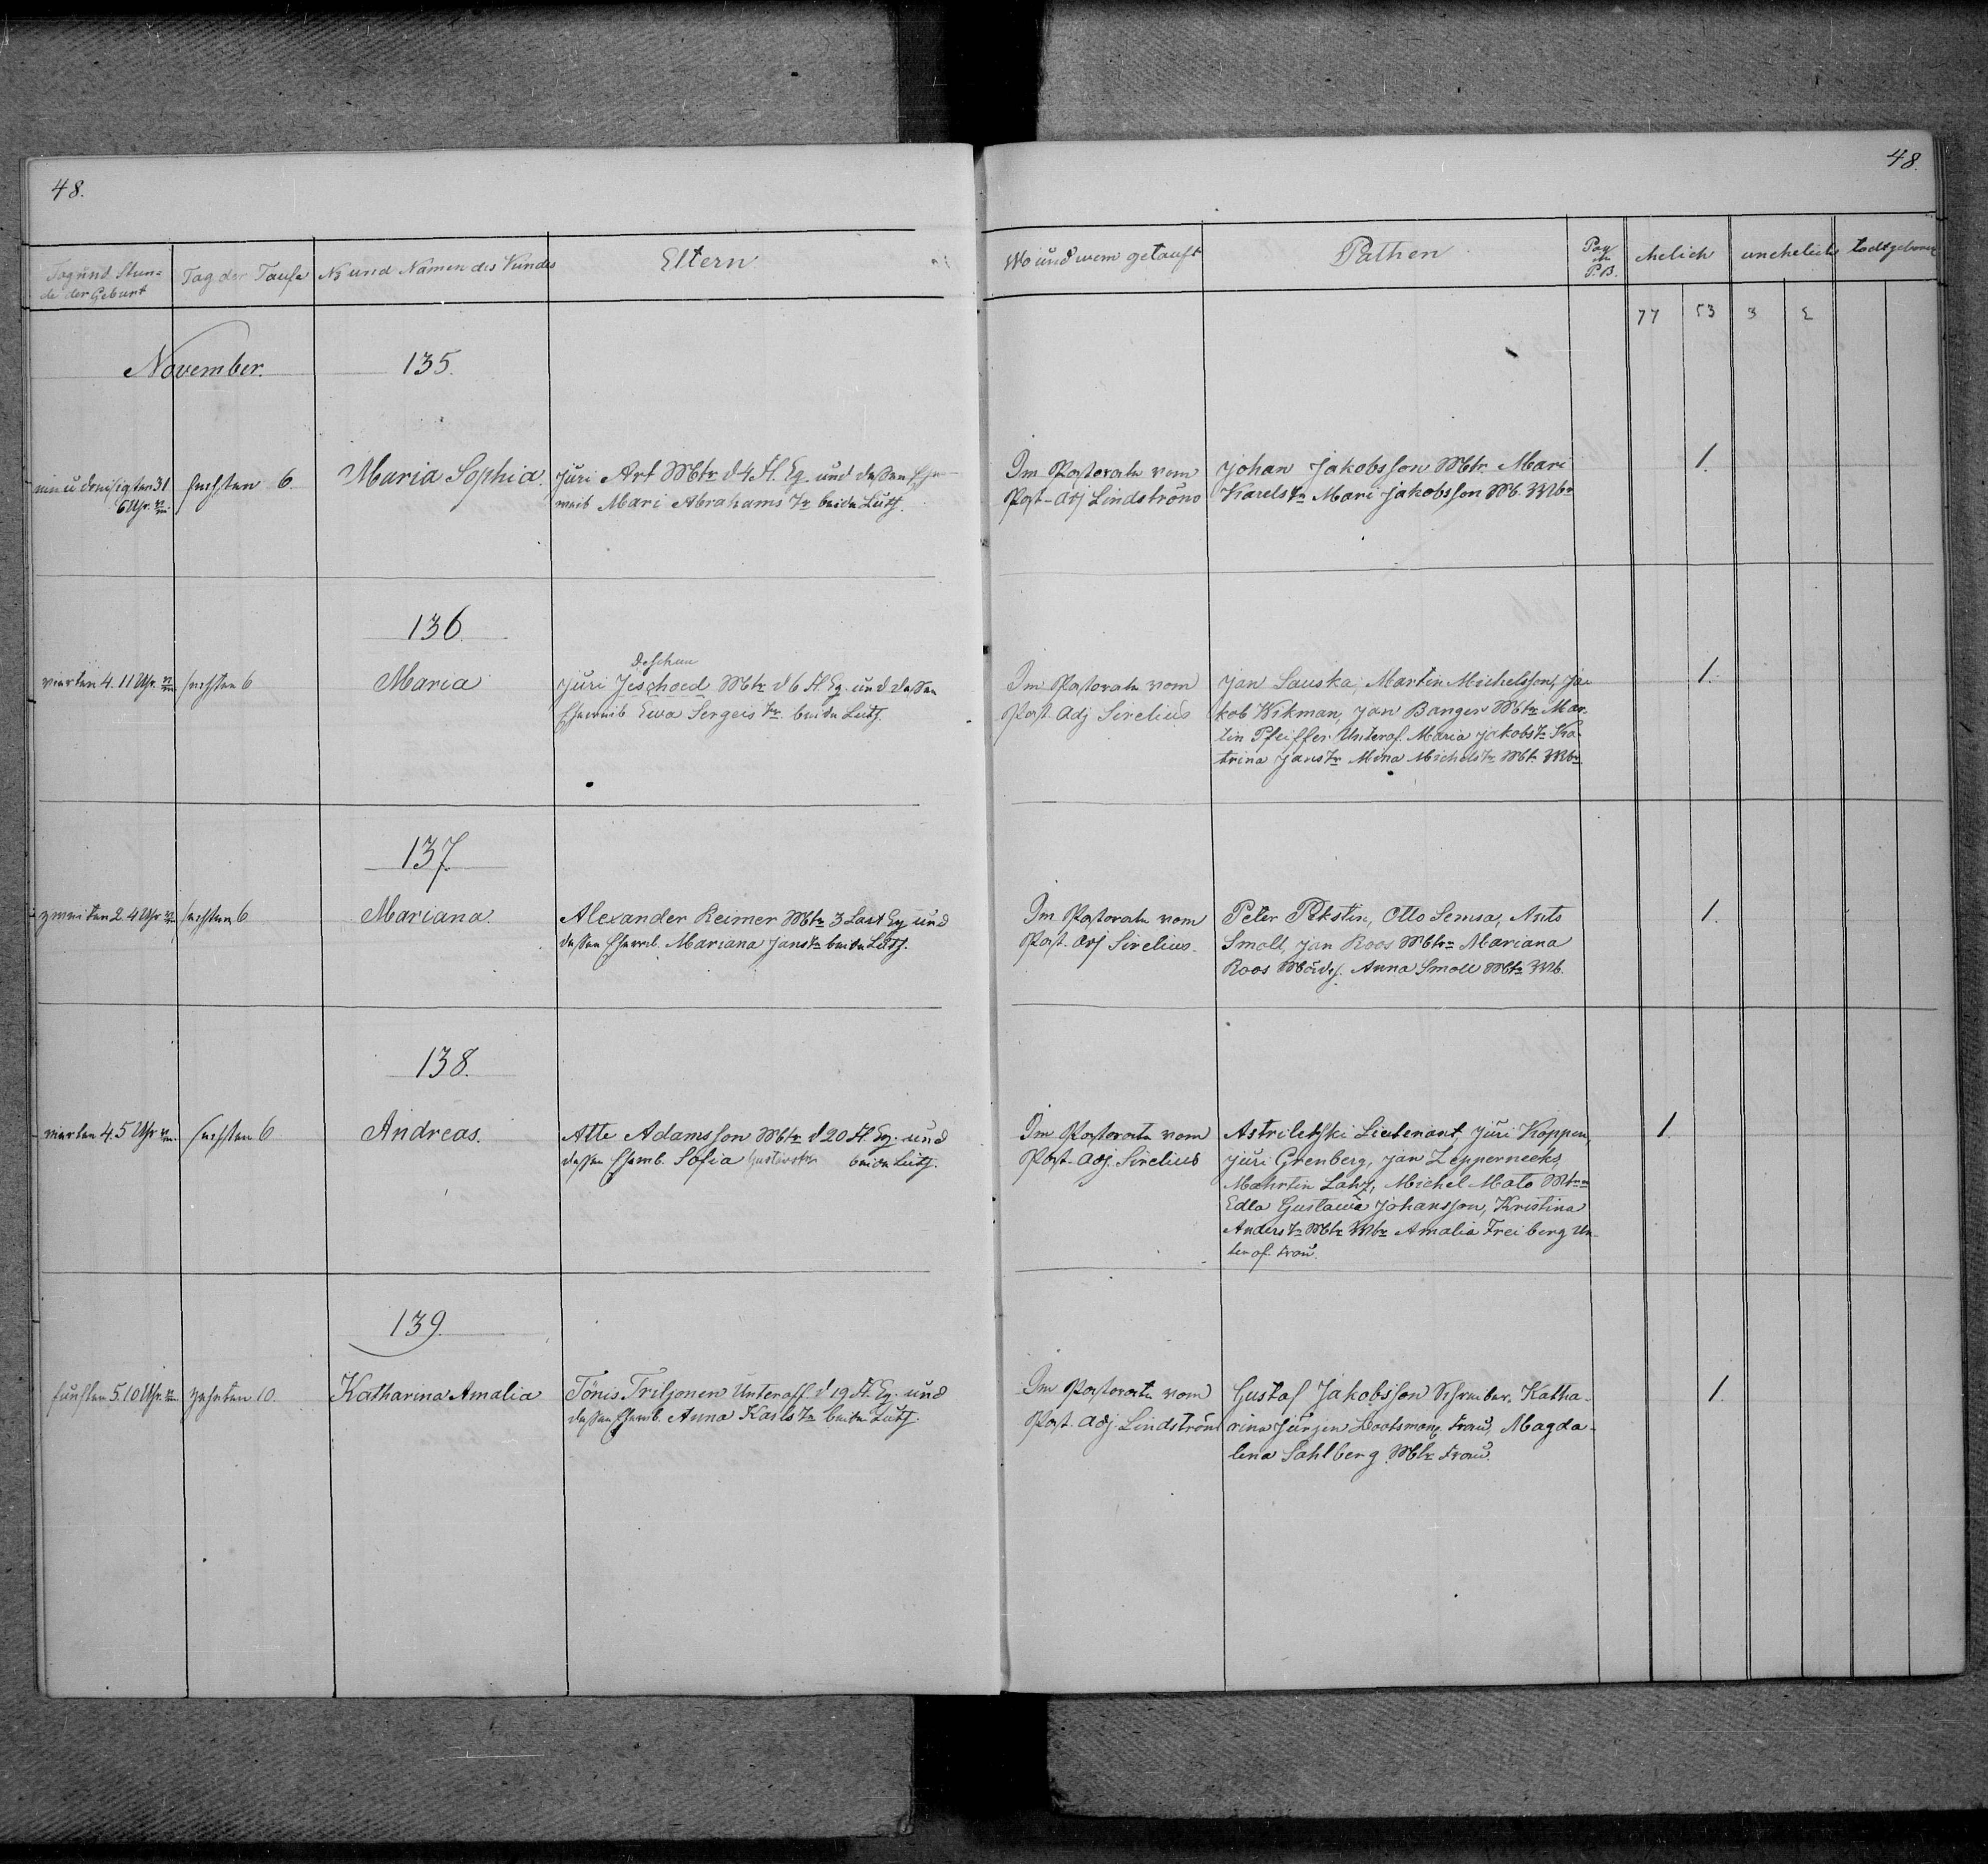 48.
48.
Tag und Stun-
de der Geburt
Tag der Taufe
No und Namen des Kindes
Eltern
Wo und wem getauft
Pathen
Pag
P.B.
ehelich
unehelich
todtgeboren
77 53 3 2
November.
135.
ein u dreißigsten 31
6 Uhr.
sechsten 6.
Maria Sophia.
Jüri Art Mtr d 4 Fl. Eq. und dessen Ehe-
weib Mari Abrahams Tr beide Luth.
Im Pastorate vom
Past-Adj Lindström
Johan Jakobsson Mtr. Mari
Karels Tr Mari Jakobsson
1.
136.
vierten 4. 11 Uhr.
sechsten 6
Maria
Jüri Jeschoed Mtr d 6 Fl. Eq. und dessen
Eheweib Ewa Sergeis Tr beide Luth.
Im Pastorate vom
Past. Adj Sirelius
Jan Sauska, Martin Michelsson, Ja-
kob Wikman, Jan Banger Mtr Mar-
tin Pfeiffer Unterof. Maria Jakobs Tr Ka-
trina Jans Tr Mina Michels Tr
1.
137.
zweiten 2. 4 Uhr
sechsten 6
Mariana.
Alexander Reimer Mtr 3 Last Eq und
dessen Eheweib. Mariana Jans Tr beide Luth.
Im Pastorate vom
Past. Adj Sirelius.
Peter Pekstin, Otto Semsa, Ants
Smoll, Jan Roos Mtr Mariana
Roos Anna Smoll Mtr Wb.
1.
138.
vierten 4. 5 Uhr
sechsten 6
Andreas.
Atte Adamsson Mtr d 20 Fl. Eq. und
dessen Ehewb. Sofia Gustavs Tr beide Luth.
Im Pastorate vom
Past-Adj. Sirelius
Astriletski Lieutenant, Jüri Koppen,
Jüri Grenberg, Jan Lepperneeks,
Mahrtin Lahz, Michel Mato Mtr
Edla Gustawa Johansson, Kristina
Anders Tr Mtr Wbr Amalia Freiberg Un-
terof. Frau.
1.
139.
fünften 5. 10 Uhr.
zehnten 10.
Katharina Amalia
Tönis Triljonen Unteroff. d 19 Fl. Eq. und
dessen Ehewb. Anna Karls Tr beide Luth.
Im Pastorate vom
Past. Adj Lindström
Gustaf Jakobsson Schreiber. Katha-
rina Jürjen Bootsmans Frau, Magda-
lena Sahlberg Mtr Frau.
1.